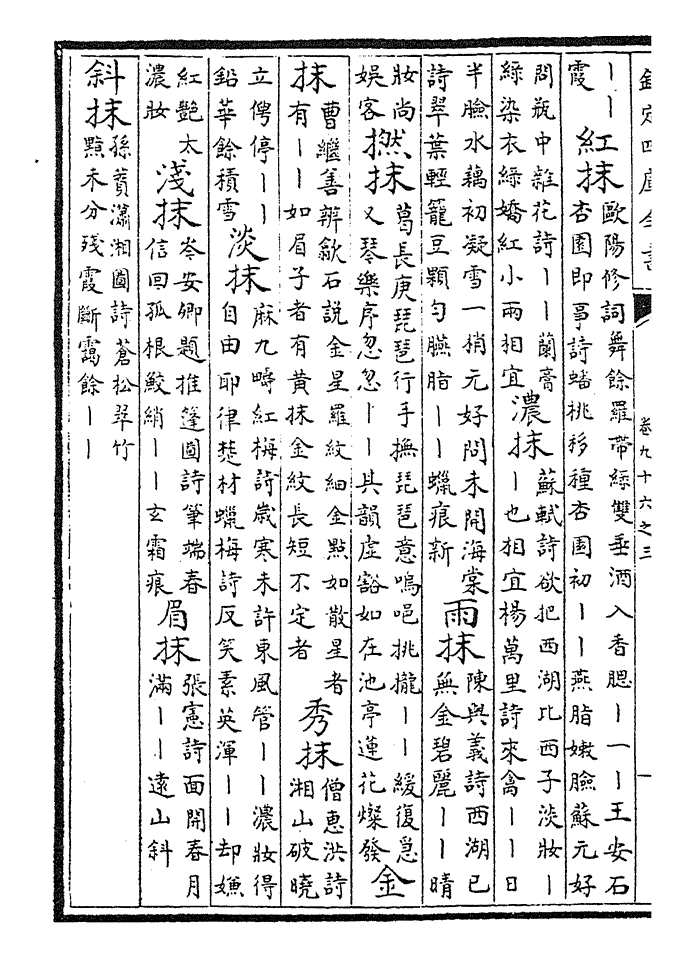 欽定四庫全書
卷九十六之三
一
丨丨
霞
紅抹
歐陽修詞舞餘羅帶綠雙垂酒入香腮丨一丨王安石
杏園即事詩蟠桃移種杏園初丨丨燕脂嫩臉蘇元好
問瓶中雜花詩丨丨蘭膏
綠染衣綠嬌紅小雨相宜
濃抹
蘇軾詩欲把西湖比西子淡妝丨
丨也相宜楊萬里詩來禽丨丨日
半臉水藕初凝雪一梢元好問未開海棠
詩翠葉輕籠豆顆勻臙脂丨丨蠟痕新
雨抹
陳與義詩西湖已
無金碧麗丨丨晴
妝尚
娛客
撚抹
葛長庚琵琶行手撫琵琶意嗚唈挑攏丨丨緩復急
又琴樂序忽忽丨丨其韻虛豁如在池亭蓮花燦發
金
抹
曹繼善辨歙石說金星羅紋細金點如散星者
有丨丨如眉子者有黃抹金紋長短不定者
秀抹
僧惠洪詩
湘山破曉
立俜停丨丨
鉛華餘積雪
淡抹
麻九疇紅梅詩歲寒未許東風管丨丨濃妝得
自由耶律楚材蠟梅詩反笑素英渾丨丨却嫌
紅艷太
濃妝
淺抹
岑安卿題推篷圖詩筆端春
信回孤根鮫綃丨丨玄霜痕
眉抹
張憲詩面開春月
滿丨丨遠山斜
斜抹
孫蕡瀟湘圖詩蒼松翠竹
點未分殘霞斷靄餘丨丨